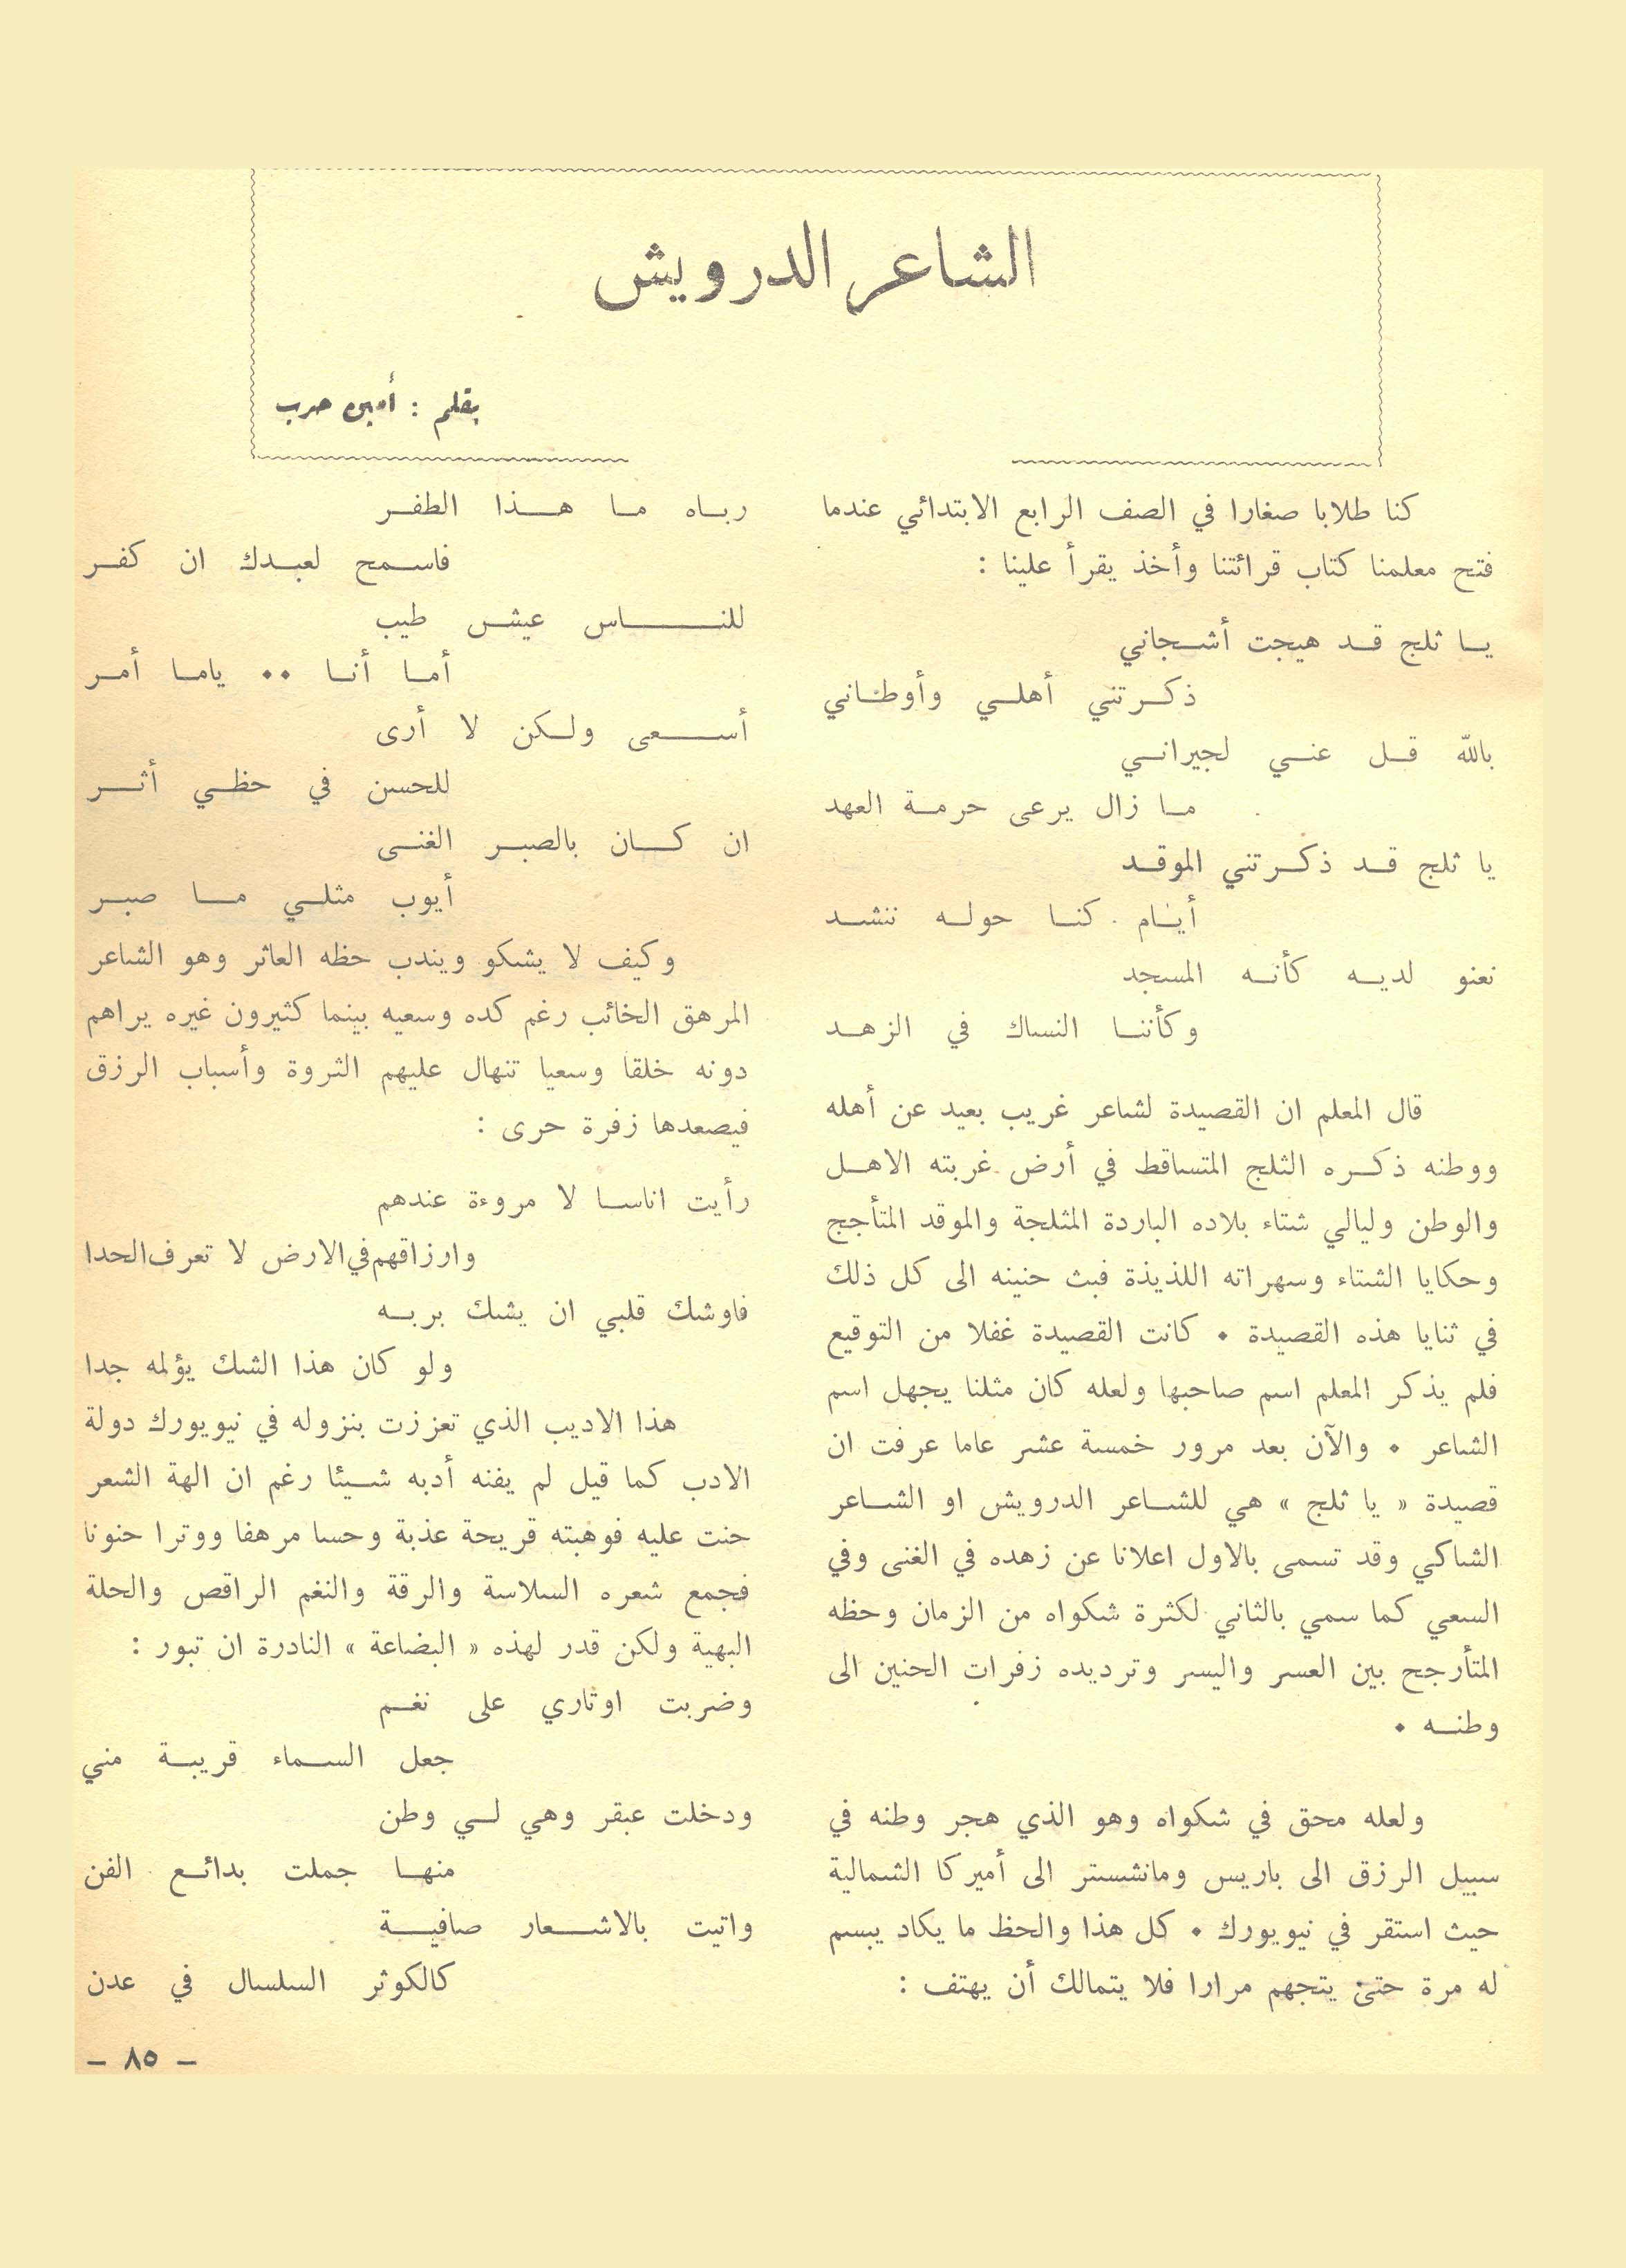 الشاعر الدرويش
بقلم : أمين حرب
كنا طلابا صغارا في الصف الرابع الابتدائي عندما
فتح معلمنا كتاب قرائتنا وأخذ يقرأ علينا :
يا ثلج قد هيجت أشجاني
ذكرتني أهلي وأوطاني
بالله قل عني لجيراني
ما زال يرعى حرمة العهد
يا ثلج قد ذكرتني الموقد
أيام كنا حوله ننشد
نعنو لديه كأنه المسجد
وكأننا النساك في الزهد
قال المعلم ان القصيدة لشاعر غريب بعيد عن أهله
ووطنه ذكره الثلج المتساقط في أرض غربته الاهل
والوطن وليالي شتاء بلاده الباردة المثلجة والموقد المتأجج
وحكايا الشتاء وسهراته اللذيذة فبث حنينه الى كل ذلك
في ثنايا هذه القصيدة ٠ كانت القصيدة غفلا من التوقيع
فلم يذكر المعلم اسم صاحبها ولعله كان مثلنا يجهل اسم
الشاعر ٠ والآن بعد مرور خمسة عشر عاما عرفت ان
قصيدة « يا ثلج » هي للشاعر الدرويش او الشاعر
الشاكي وقد تسمى بالاول اعلانا عن زهده في الغنى وفي
السعي كما سمي بالثاني لكثرة شكواه من الزمان وحظه
المتأرجح بين العسر واليسر وترديده زفرات الحنين الى
وطنه ٠
ولعله محق في شكواه وهو الذي هجر وطنه في
سبيل الرزق الى باريس ومانشستر الى أميركا الشمالية
حيث استقر في نيويورك ٠ كل هذا والحظ ما يكاد يبسم
له مرة حتى يتجهم مرارا فلا يتمالك أن يهتف :
رباه ما هذا الطفر
فاسمح لعبدك ان كفر
للناس عيش طيب
أما أنا ٠٠ ياما أمر
أسعى ولكن لا أرى
للحسن في حظي أثر
ان كان بالصبر الغنى
أيوب مثلي ما صبر
وكيف لا يشكو ويندب حظه العاثر وهو الشاعر
المرهق الخائب رغم كده وسعيه بينما كثيرون غيره يراهم
دونه خلقا وسعيا تنهال عليهم الثروة وأسباب الرزق
فيصعدها زفرة حرى :
رأيت اناسا لا مروءة عندهم
وارزاقهم في الارض لا تعرف الحدا
فاوشك قلبي ان يشك بربه
ولو كان هذا الشك يؤلمه جدا
هذا الاديب الذي تعززت بنزوله في نيويورك دولة
الادب كما قيل لم يفنه أدبه شيئا رغم ان الهة الشعر
حنت عليه فوهبته قريحة عذبة وحسا مرهفا ووترا حنونا
فجمع شعره السلاسة والرقة والنغم الراقص والحلة
البهية ولكن قدر لهذه « البضاعة » النادرة ان تبور :
وضربت اوتاري على نغم
جعل السماء قريبة مني
ودخلت عبقر وهي لي وطن
منها جملت بدائع الفن
واتيت بالاشعار صافية
كالكوثر السلسال في عدن
– ٨٥ –